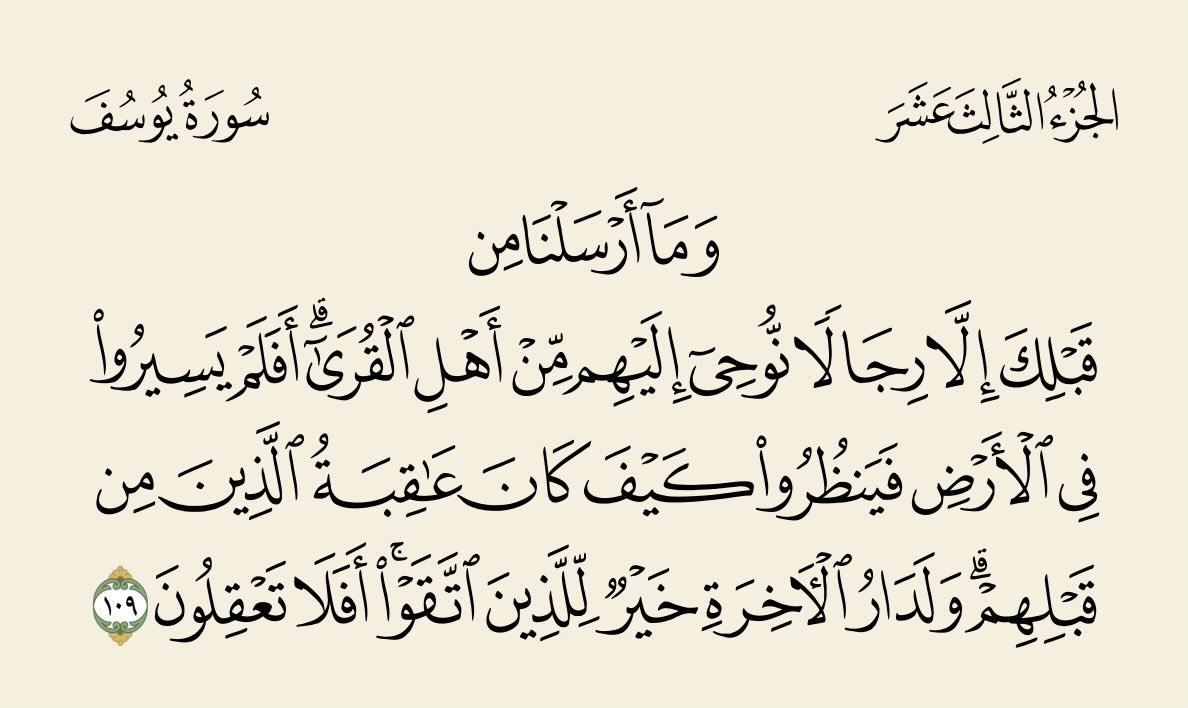 الجُزْءُ الثَّالِثَ عَشَرَ
سُورَةُ يُوسُفَ
وَمَآ أَرْسَلْنَا مِن
قَبْلِكَ إِلَّا رِجَالًا نُّوحِىٓ إِلَيْهِم مِّنْ أَهْلِ ٱلْقُرَىٰٓ ۗ أَفَلَمْ يَسِيرُوا۟
فِى ٱلْأَرْضِ فَيَنظُرُوا۟ كَيْفَ كَانَ عَـٰقِبَةُ ٱلَّذِينَ مِن
قَبْلِهِمْ ۗ وَلَدَارُ ٱلْـَٔاخِرَةِ خَيْرٌ لِّلَّذِينَ ٱتَّقَوْا۟ ۚ أَفَلَا تَعْقِلُونَ ١٠٩